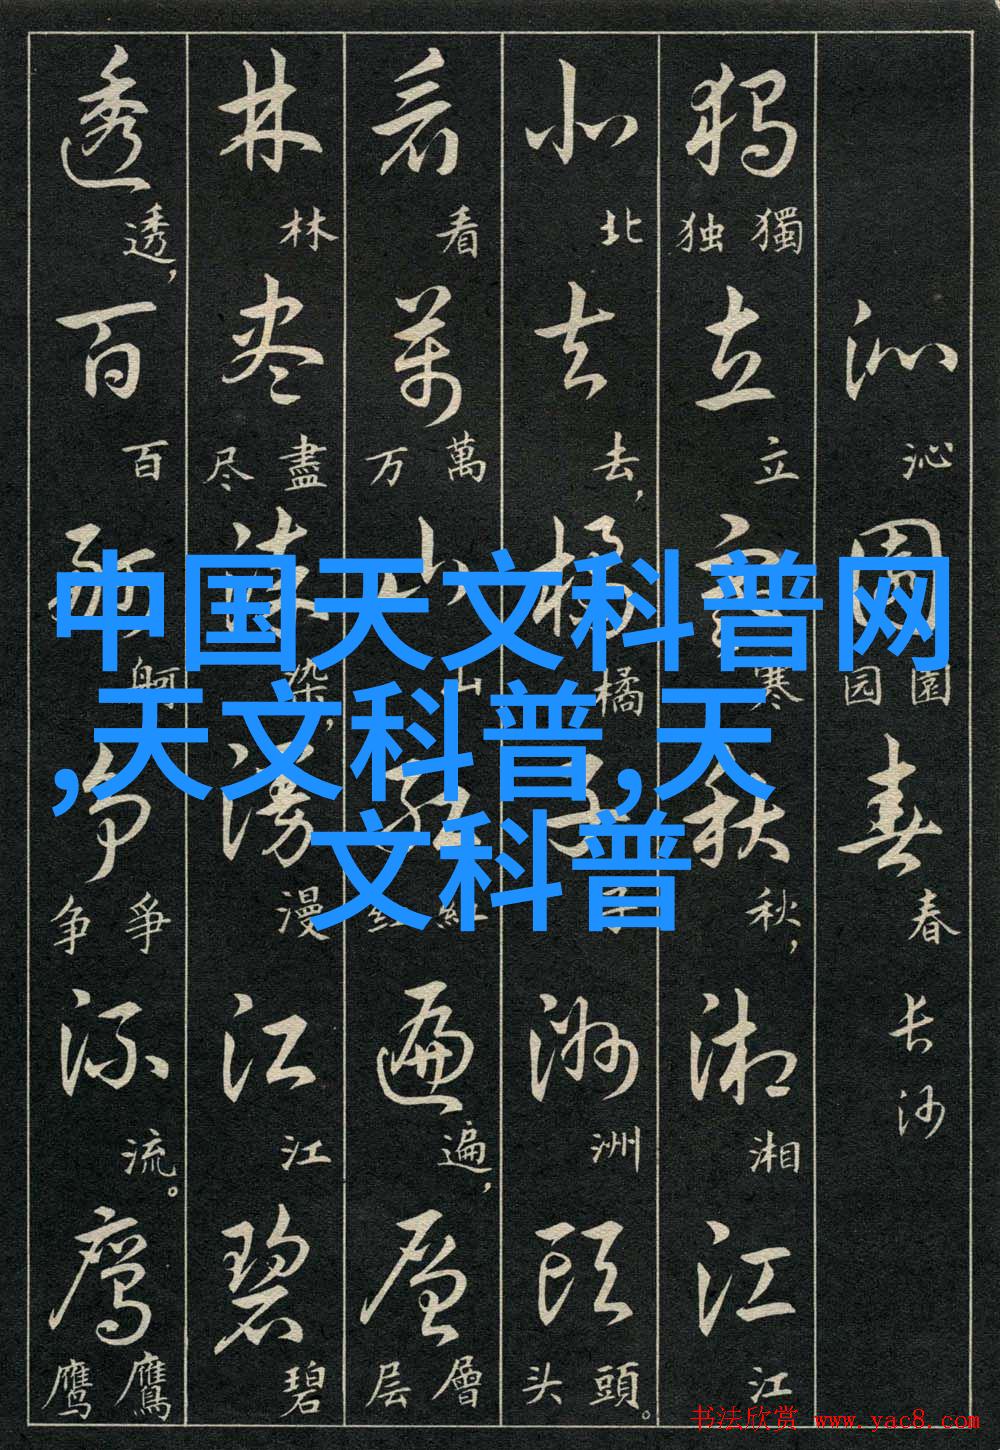 中国天文科普网
,天文科普,天
文科普
沁 沁 園 園园 春 春 长沙
獨 獨独 立 立 寒 寒 秋 秋， 湘 湘 江 江
北 北 去 去， 橘 橘 子 子 洲 洲 頭 頭头。
看 看 萬 萬万 山 山 红 紅红 遍 遍， 層 層层
林 林 尽 盡尽 染 染， 漫 漫 江 江 碧 碧
透 透， 百 百 舸 舸 争 爭争 流 流。 鹰 鷹鹰
书法欣赏 www.yac8.com